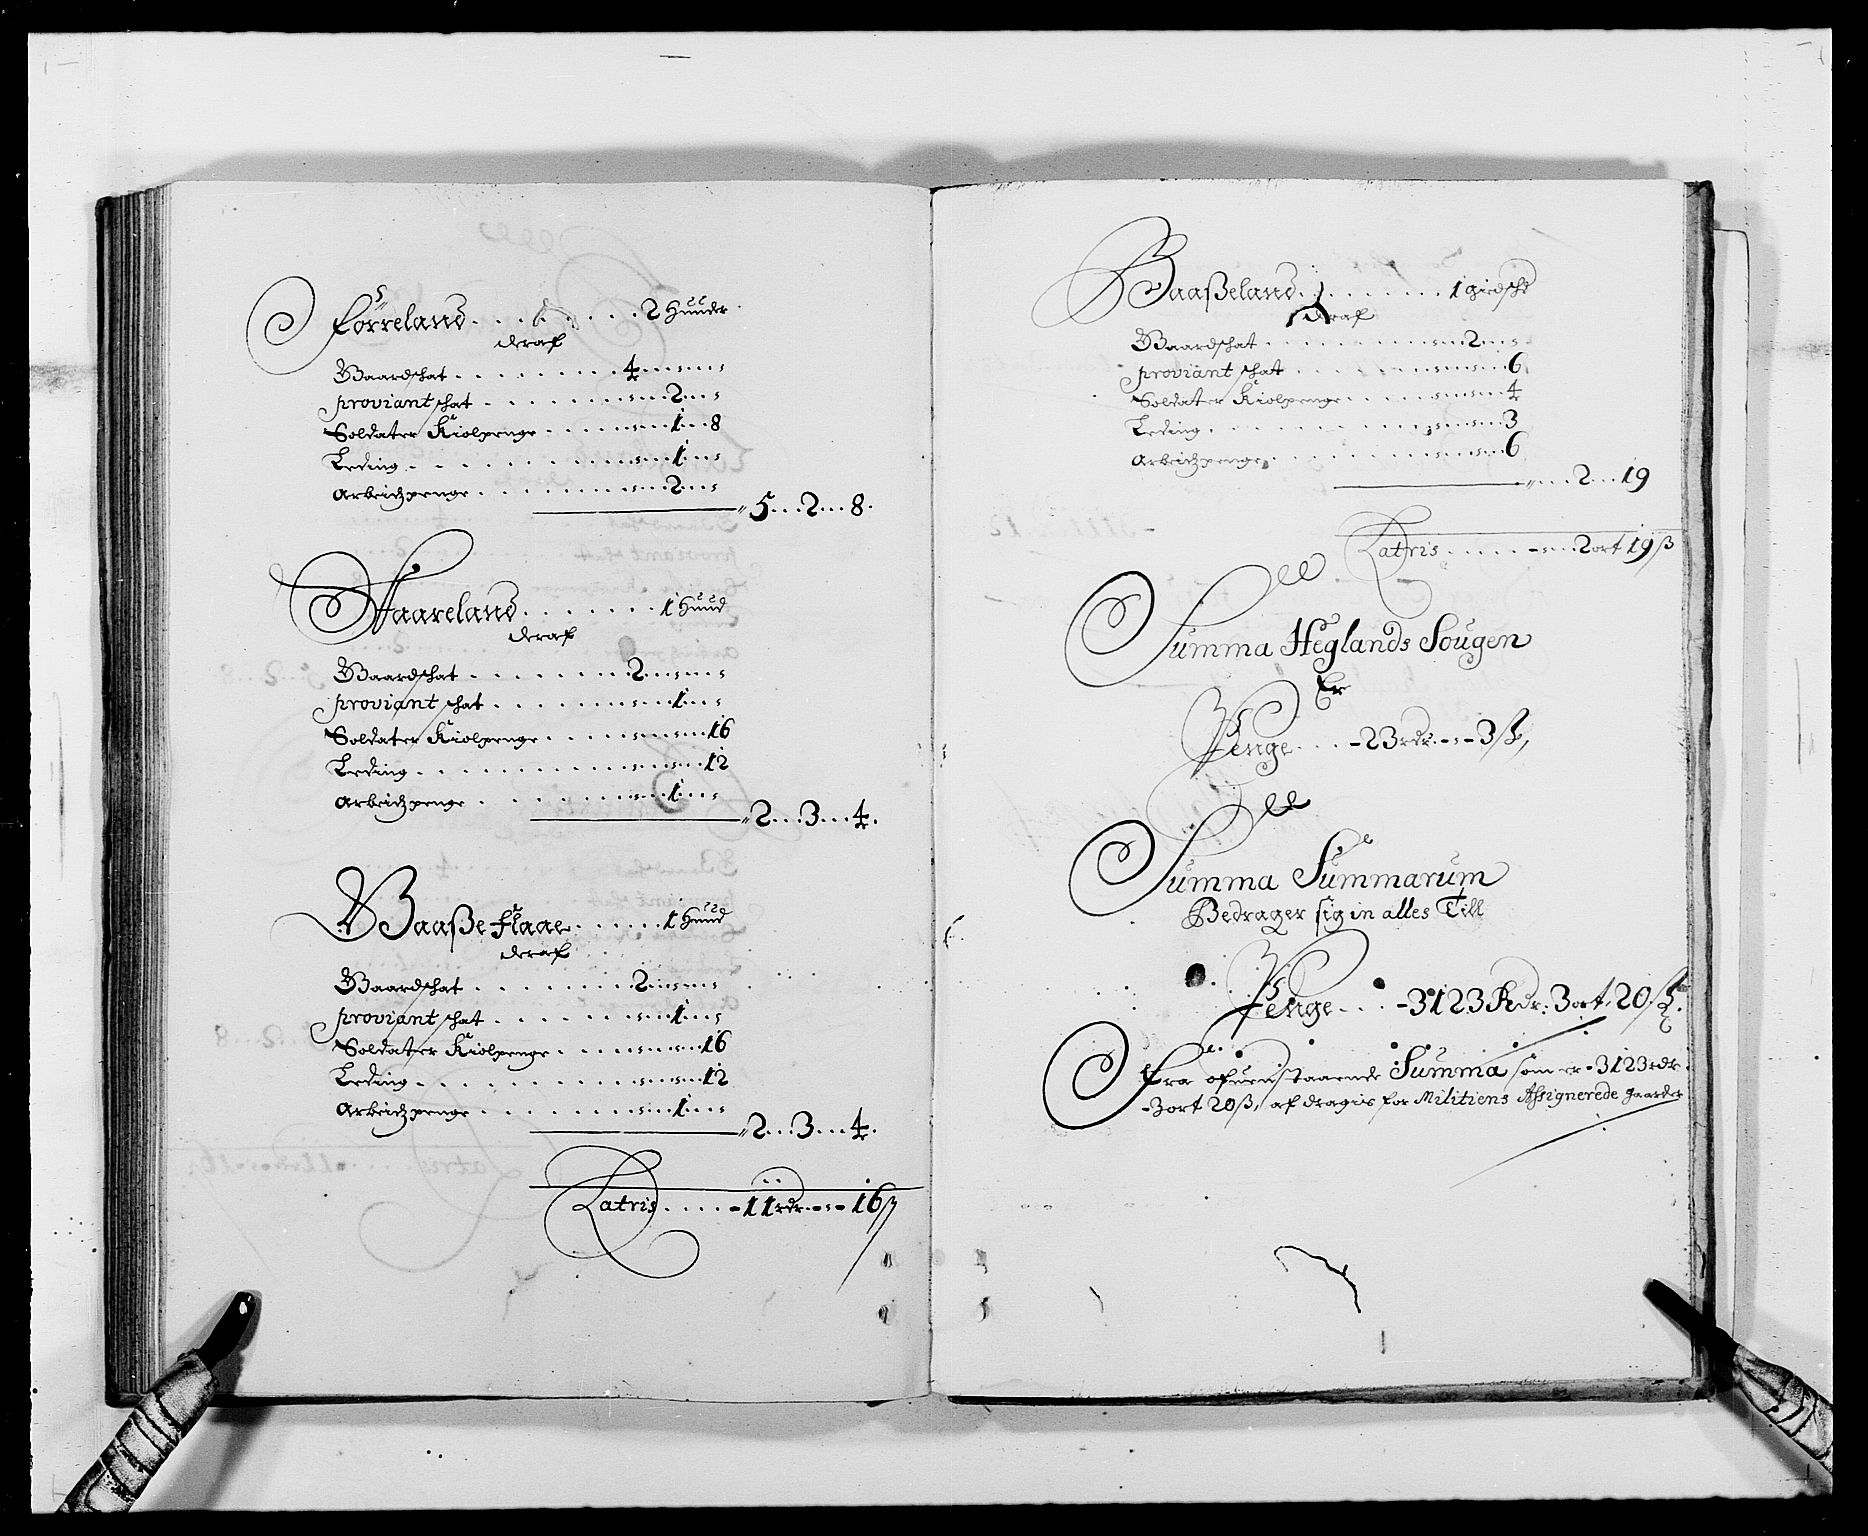 Förreland . . . . . . . . 2 Huuder
deraf
Baardschat . . . . . . . . 4 . . . . . .
proviant schat . . . . . . . . 2 . . .
Soldater Kiolpenge . . . . . . 1 . . 8
Leding . . . . . . . . . . 1 . . .
Arbeidzpenge . . . . . . . . 2 . . .
5 . . . 2 . . . 8 .
Haareland . . . . . . . 1 Huud
deraf
Baardschat . . . . . . . . 2 . . . . . .
proviant schat . . . . . . . . 1 . . .
Soldater Kiolpenge . . . . . . . . 16
Leding . . . . . . . . . . . . 12
Arbeidzpenge . . . . . . . . 1 . . .
2 . . . 3 . . . 4 .
Baaße flaae . . . . . . 1 Huud
deraf
Baardschat . . . . . . . . 2 . . . . . .
proviant schat . . . . . . . . 1 . . .
Soldater Kiolpenge . . . . . . . . 16
Leding . . . . . . . . . . . . 12
Arbeidzpenge . . . . . . . . 1 . . .
2 . . . 3 . . . 4 .
Latris . . . . - 11 rdr - - 16 ß
Baaßeland . . . . . . . . 1 giedsche
deraf
Baardschat . . . . . . . . 2 . . .
proviant schat . . . . . . . . 6
Soldater Kiolpenge . . . . . . 4
Leding . . . . . . . . . . 3
Arbeidzpenge . . . . . . . . 6
. . . 2 . . . 19
Latris . . . . - . . 2 ort 19 ß
Summa Heglands Sougen
Er
Penge . . . - 23 rdr - - 3 ß,
Summa Summarum
Bedrager sig in alles Till
Penge . . . - 3123 Rdr: 3 ort. 20 ß.
Fra ofuenstaaende Summa som er - 3123 rdr
- 3 ort 20 ß, af dragis for Militiens Assignerede gaarder